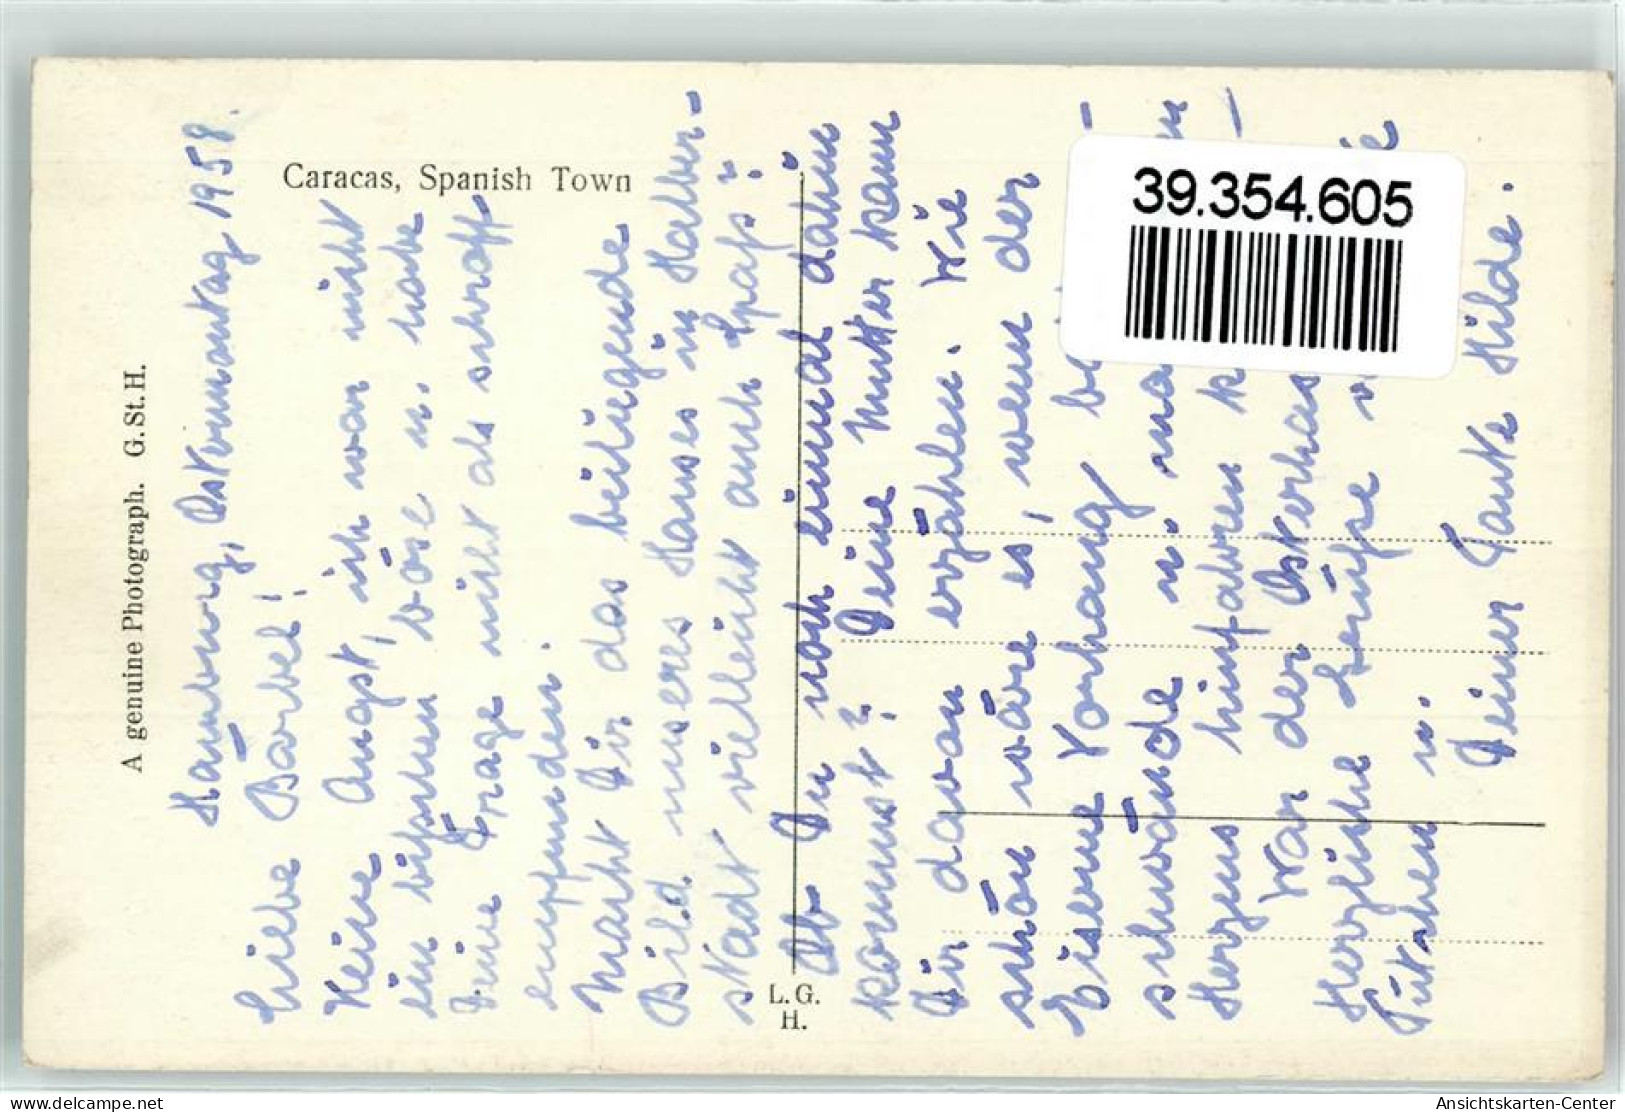 A genuine Photograph. G. St. H.
Caracas, Spanish Town
L. G.
H.
39.354.605
Hamburg, Ostermontag 1958.
Liebe Bärbel!
Keine Angst, ich war nicht
ein bißchen böse u. habe
Deine Frage nicht als schroff
empfunden.
Macht Dir das beiliegende
Bild unseres Hauses in Halber-
stadt vielleicht auch Spaß?
Ob Du noch einmal dahin
kommst? Deine Mutter kann
Dir davon erzählen. Wie
schön wäre es, wenn der
Eiserne Vorhang
schwände u.
Herzens hinfahren
War der Osterhas
Herzliche Grüße
Tütchen u.
Deiner Tante Hilde.
www.delcampe.net
Ansichtskarten-Center